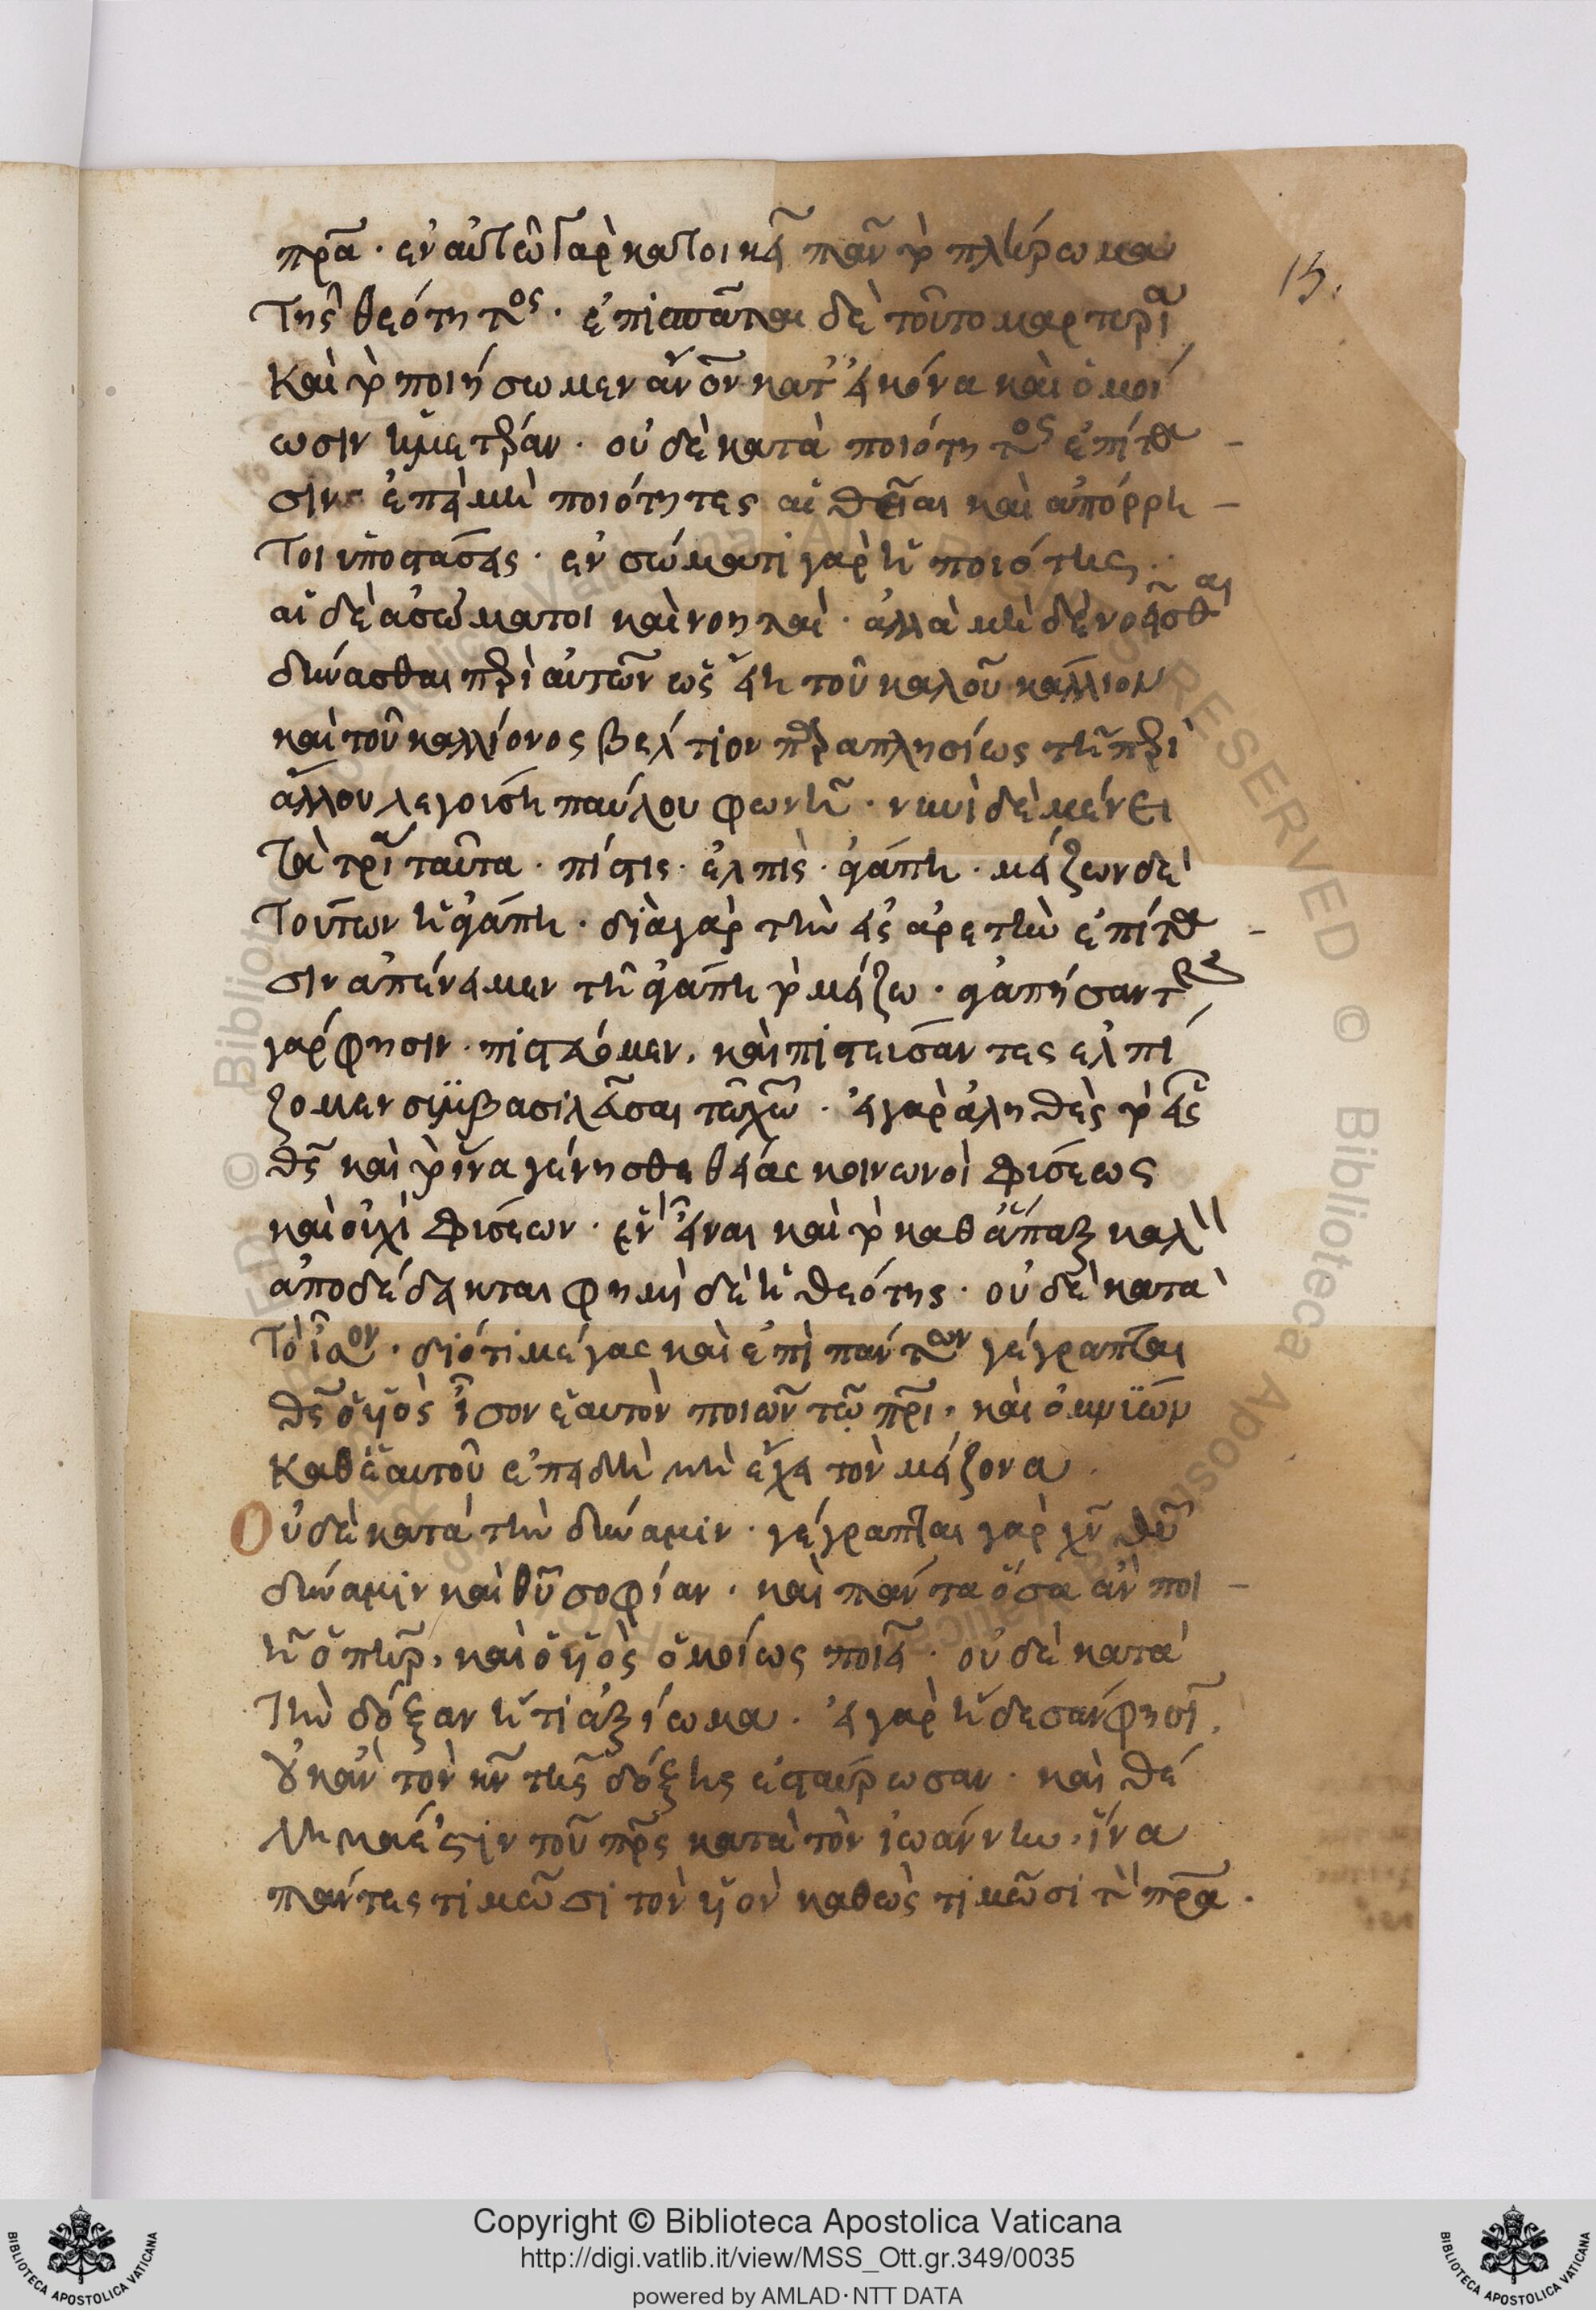 πρα̅· ἐν αὐτῶ γὰρ κατοικεῖ πᾶν τὸ πλήρωμα
15.
τῆς θεότητος· ἐπισπᾶται δὲ τοῦτο μαρτυρία
καὶ τὸ ποιήσωμεν ἄνον κατ' εἰκόνα καὶ ὁμοί
ωσιν ἡμετέραν· οὐδὲ κατὰ ποιότητος ἐπίτα -
σιν ἐπεὶ μὴ ποιότητες αἱ θεῖαι καὶ ἀπόρρη -
τοι ὑποστάσεις· ἐν σώματι γὰρ ἡ ποιότης·
αἱ δὲ ἀσώματοι καὶ νοηταὶ· ἀλλὰ μὴ δὲ νοεῖσθαι
δύνασθαι περὶ αὐτῶν ὡς εἴη τοῦ καλοῦ κάλλιον
καὶ τοῦ καλλίονος βέλτιον παραπλησίως τῆ περὶ
ἄλλου λεγούση παύλου φωνῆ· νυνὶ δὲ μένει
τὰ τρία ταῦτα· πίστις· ἐλπὶς· ἀγάπη· μείζων δὲ
τούτων ἡ ἀγάπη· διὰ γὰρ τὴν εἰς ἀρετὴν ἐπίτα -
σιν ἀπένειμεν τῆ ἀγάπη τὸ μεῖζω· ἀγαπήσαντες
γάρ φησιν· πιστεύομεν, καὶ πιστεύσαντες ἐλπί
ζομεν συμβασιλεῦσαι τῶ χω̅· εἰ γὰρ ἀληθὲς τὸ εἷς
θς̅ καὶ τὸ ἵνα γένησθε θείας κοινωνοὶ φύσεως
καὶ οὐχὶ φύσεων· ἓν εἶναι καὶ τὸ καθάπαξ καλὸν
ἀποδέδεικται φημὶ δὲ ἡ θεότης· οὐδὲ κατὰ
τὸ ἴσον· διότι μέγας καὶ ἐπὶ πάντων γέγραπται
θς̅ ὁ υἱὸς ἶσον ἑαυτὸν ποιῶν τῶ πρι̅, καὶ ὀμνύων
καθ' ἑαυτοῦ ἐπειδὴ μὴ ἔχει τὸν μείζονα·
Οὐδὲ κατὰ τὴν δύναμιν· γέγραπται γὰρ χν̅ θυ̅
δύναμιν καὶ θυ̅ σοφίαν· καὶ πάντα ὅσα ἂν ποι -
ῆ ὁ πηρ̅, καὶ ὁ υἱὸς ὁμοίως ποιεῖ· οὐδὲ κατὰ
τὴν δόξαν ἤ τι ἀξίωμα· εἰ γὰρ ἤδεσάν φησι,
οὐκ ἂν τὸν κν̅ τῆς δόξης ἐσταύρωσαν· καὶ θέ
λημά ἐστιν τοῦ πρς̅ κατὰ τὸν ἰωάννην, ἵνα
πάντες τιμῶσι τὸν υἱὸν καθὼς τιμῶσι τὸν πρα̅·
Copyright © Biblioteca Apostolica Vaticana
http://digi.vatlib.it/view/MSS_Ott.gr.349/0035
powered by AMLAD·NTT DATA
BIBLIOTECA APOSTOLICA VATICANA
BIBLIOTECA APOSTOLICA VATICANA